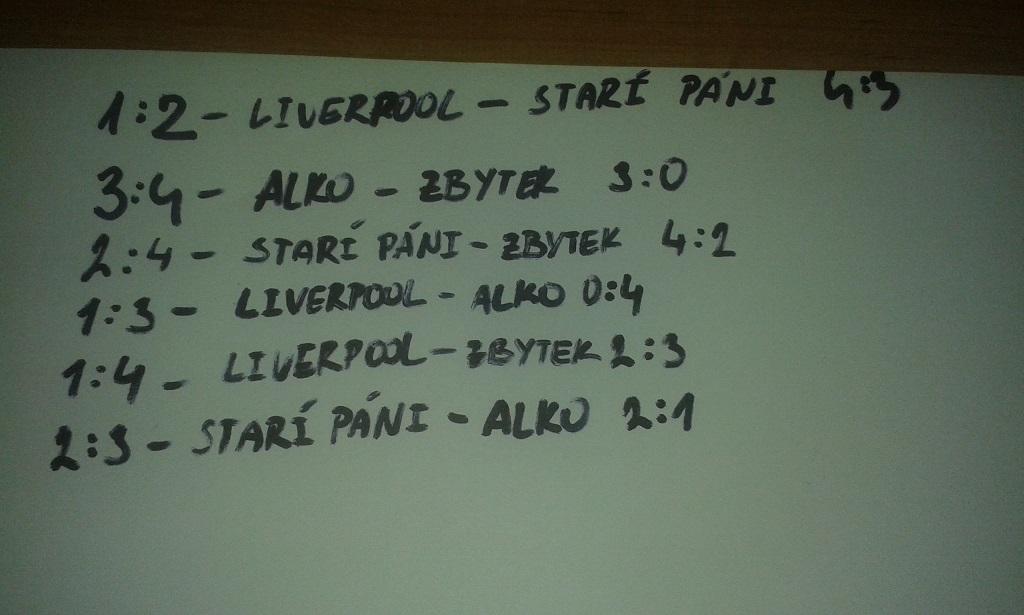 1:2 - LIVERPOOL - STARÍ PÁNI 4:3
3:4 - ALKO - ZBYTEK 3:0
2:4 - STARÍ PÁNI - ZBYTEK 4:2
1:3 - LIVERPOOL - ALKO 0:4
1:4 - LIVERPOOL - ZBYTEK 2:3
2:3 - STARÍ PÁNI - ALKO 2:1